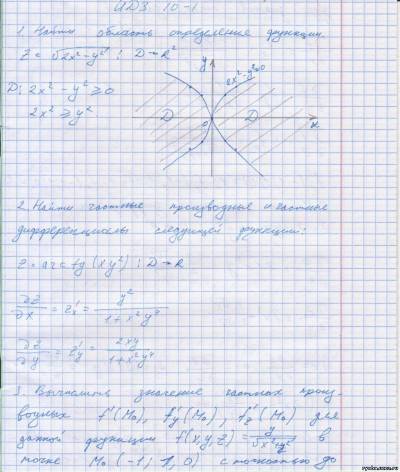 ИДЗ 10-1
1. Найти область определения функции.
Z = √2x² - y² ; D → R²
y
2x² - y² = 0
D: 2x² - y² ≥ 0
2x² ≥ y²
D
D
0
x
2. Найти частные производные и частные
дифференциалы следущей функции:
Z = arctg (xy²) ; D → R
∂z/∂x = z'x = y²/(1 + x²y⁴)
∂z/∂y = z'y = 2xy/(1 + x²y⁴)
3. Вычислить значение частных произ-
водных f'(M₀), f'y(M₀), f'z(M₀) для
данной функции f(x,y,z) = y/√x²+y² в
точке M₀ (-1; 1, 0) с точностью до